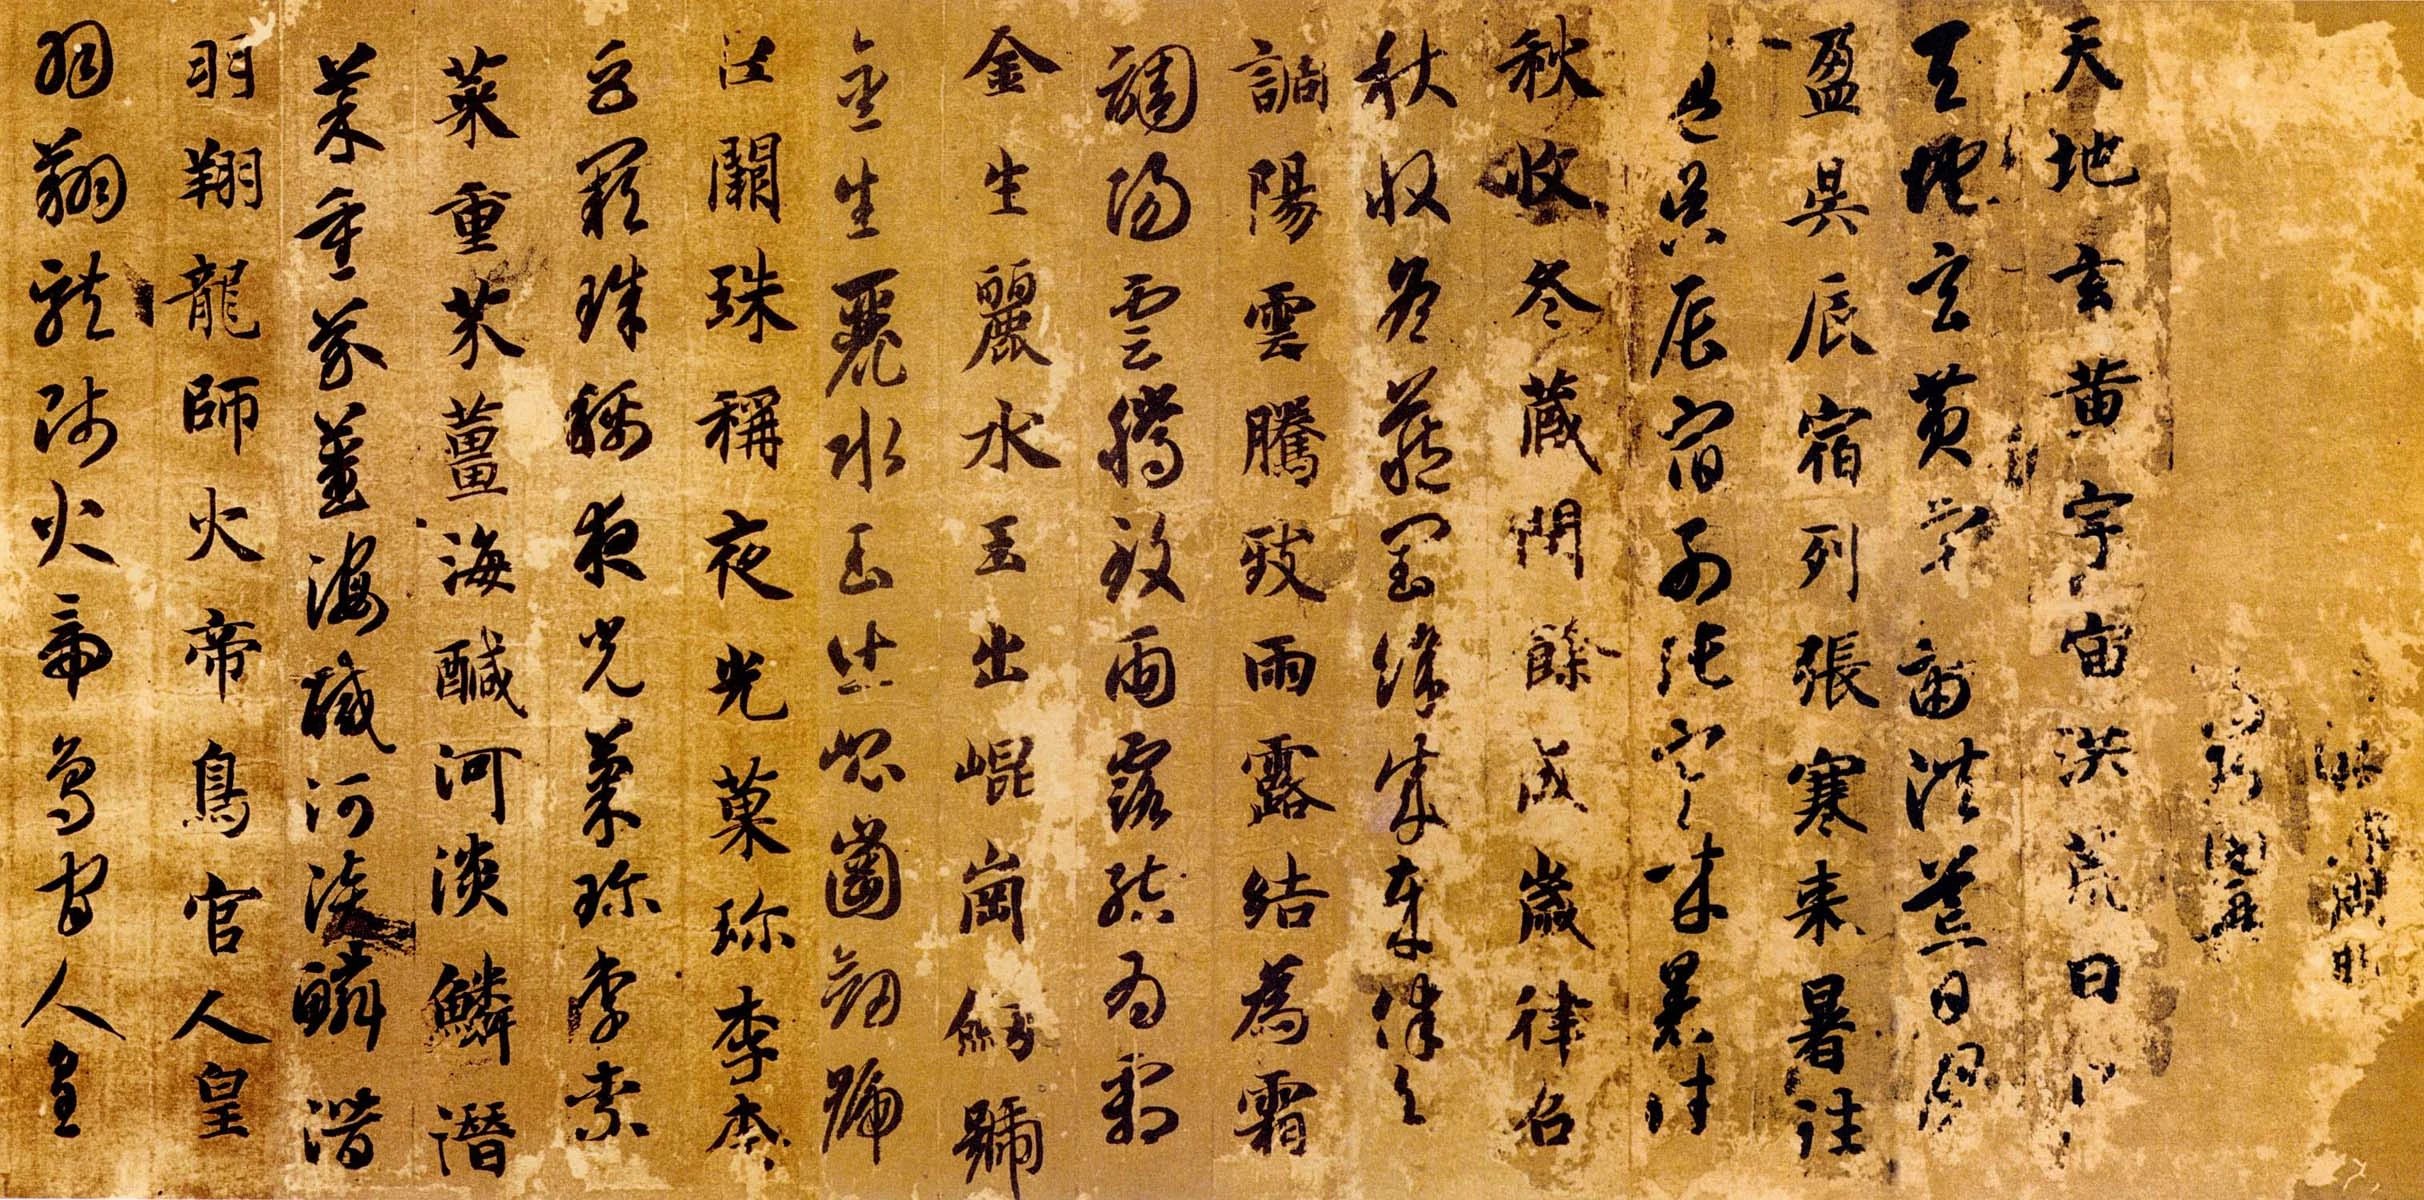 天地玄黄宇宙洪荒日
天地玄黄宇宙洪荒日月
盈昃辰宿列張寒来暑往
盈昃辰宿列張寒来暑往
秋收冬藏閏餘成歲律呂
秋收冬藏閏餘成歲律呂
調陽雲騰致雨露結為霜
調陽雲騰致雨露結為霜
金生麗水玉出崐崗劒號
金生麗水玉出崐崗劒號
巨闕珠稱夜光菓珍李柰
巨闕珠稱夜光菓珍李柰
菜重芥薑海醎河淡鱗潛
菜重芥薑海醎河淡鱗潛
羽翔龍師火帝鳥官人皇
羽翔龍師火帝鳥官人皇